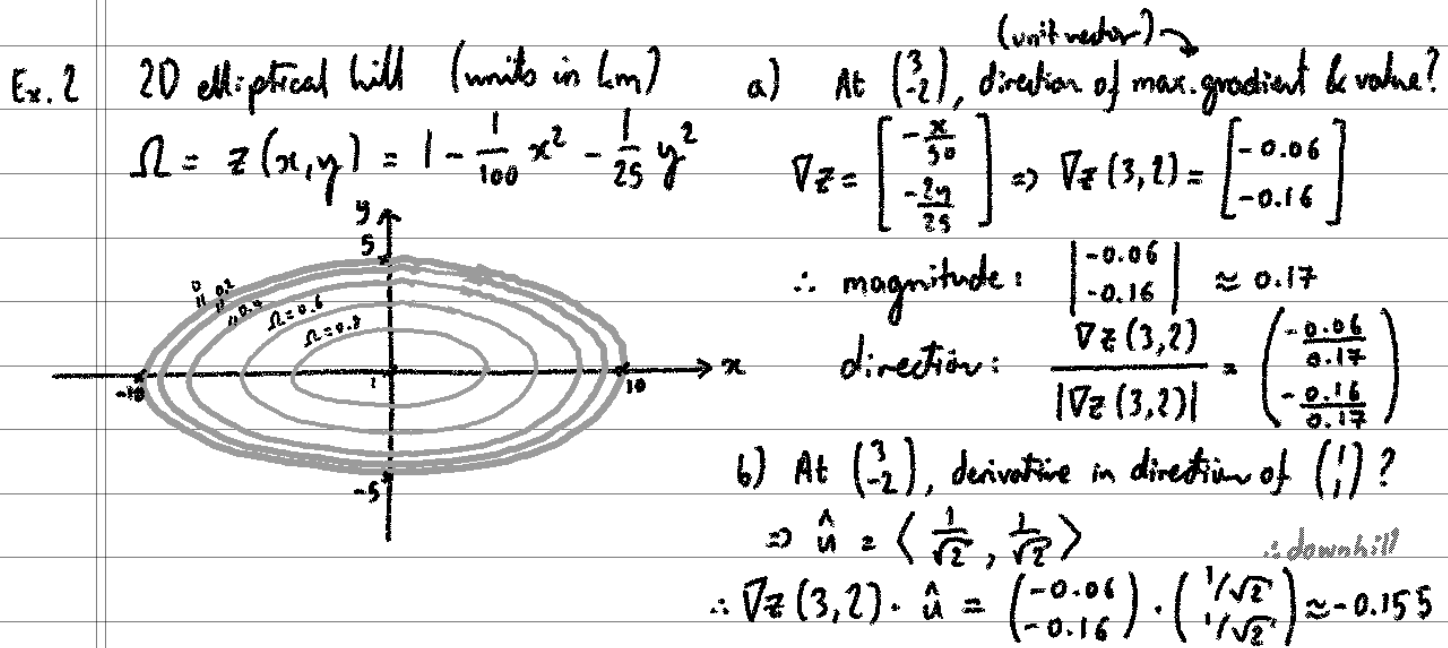 Ex. 2 2D elliptical hill (units in km)
Ω = z(x,y) = 1 - 1/100 x² - 1/25 y²
y
5
0 = 0.2 = 0.4 Ω=0.6
Ω=0.8
-10 1 10 x
-5
(unit vector)
a) At (3 -2), direction of max. gradient & value?
∇z = [-x/50 -2y/25] ⇒ ∇z(3,2) = [-0.06 -0.16]
∴ magnitude: |-0.06 -0.16| ≈ 0.17
direction: ∇z(3,2)/|∇z(3,2)| = (-0.06/0.17 -0.16/0.17)
b) At (3 -2), derivative in direction of (1 1)?
⇒ û = ⟨1/√2, 1/√2⟩ ∴ downhill
∴ ∇z(3,2) · û = (-0.06 -0.16) · (1/√2 1/√2) ≈ -0.155